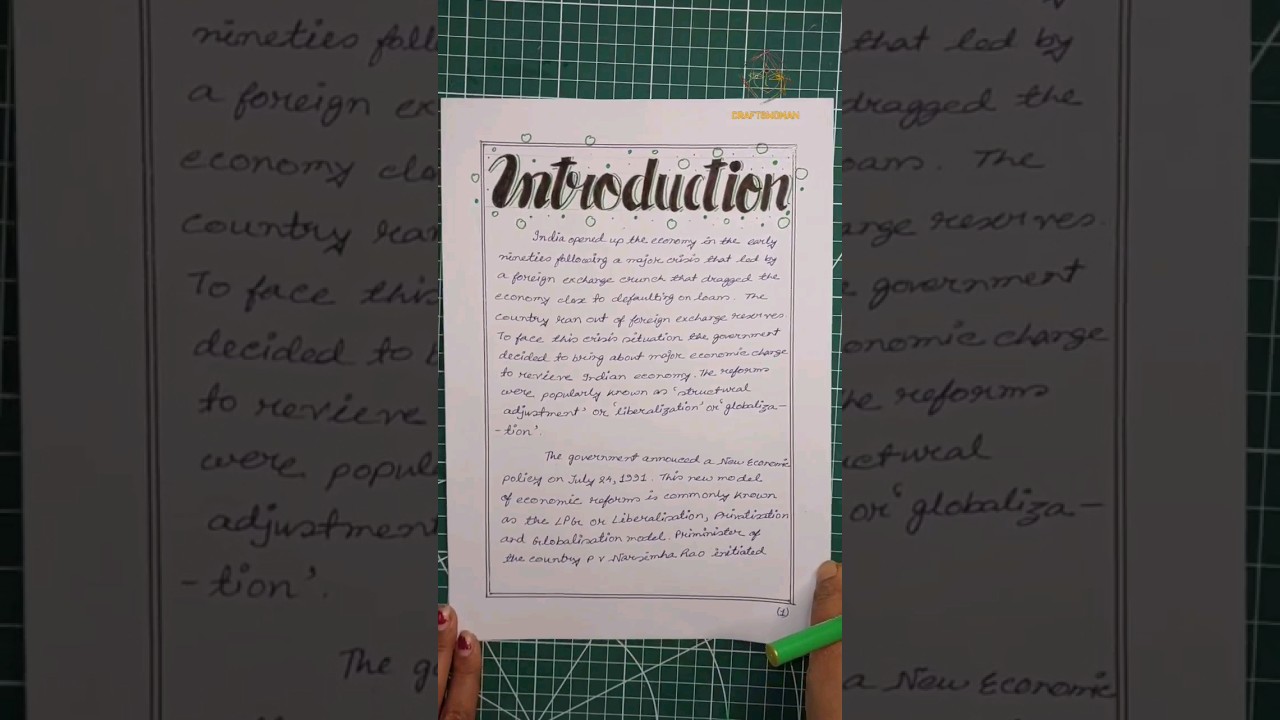 CRAFTSNOMAN
Introduction
India opened up the economy in the early
nineties following a major crisis that led by
a foreign exchange crunch that dragged the
economy close to defaulting on loans. The
country ran out of foreign exchange reserves.
To face this crisis situation the government
decided to bring about major economic change
to revieve Indian economy. The reforms
were popularly known as 'structural
adjustment' or 'liberalization' or 'globaliza-
-tion'.
The government annouced a New Economic
policy on July 24, 1991. This new model
of economic reforms is commonly known
as the LPG or Liberalisation, Privatization
and Globalisation model. Priminister of
the country P V Narsimha Rao initiated
(1)